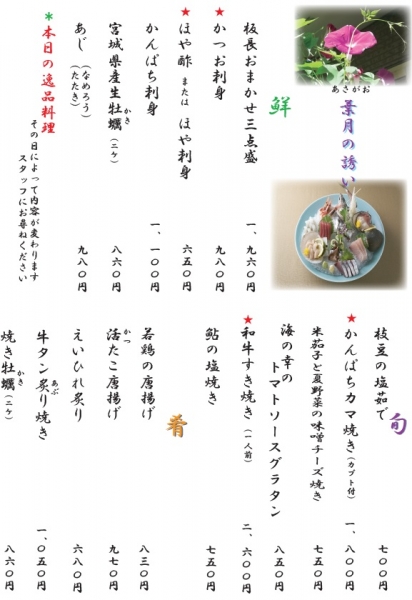 あさがお
葉月の誘い
鮮
板長おまかせ三点盛 一、九六〇円
★かつお刺身 九八〇円
★ほや酢 または ほや刺身 六五〇円
かんぱち刺身 一、一〇〇円
宮城県産生牡蠣(二ケ) 八六〇円
かき
あじ (なめろう)(たたき) 九八〇円
*本日の逸品料理
その日によって内容が変わります
スタッフにお尋ねください
旬
枝豆の塩茹で 七〇〇円
★かんぱちカマ焼き(カブト付) 一、八〇〇円
米茄子と夏野菜の味噌チーズ焼き 七五〇円
海の幸の
トマトソースグラタン 八五〇円
★和牛すき焼き(一人前) 二、六〇〇円
鮎の塩焼き 七五〇円
肴
若鶏の唐揚げ 八三〇円
活たこ唐揚げ 九七〇円
かつ
えいひれ炙り 六八〇円
牛タン炙り焼き 一、〇五〇円
あぶ
焼き牡蠣(二ケ) 八六〇円
かき